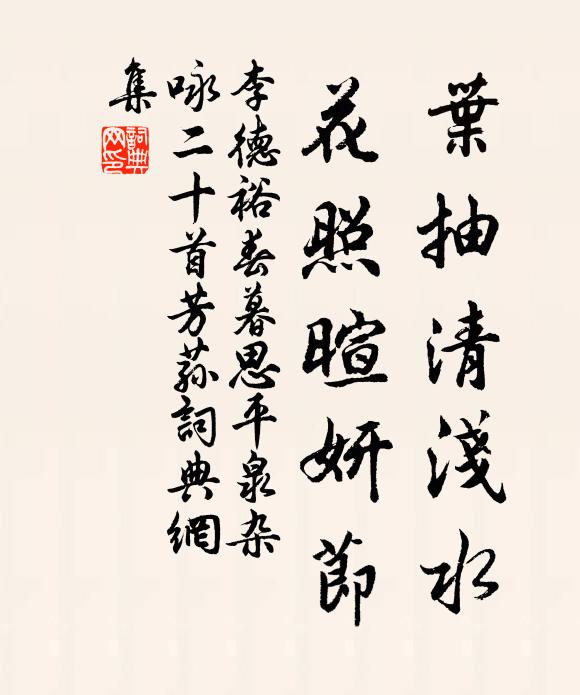 葉抽清淺水
花照暄妍節
李德裕春暮思平泉杂
咏二十首芳荪詞典網
集
詞典
网印